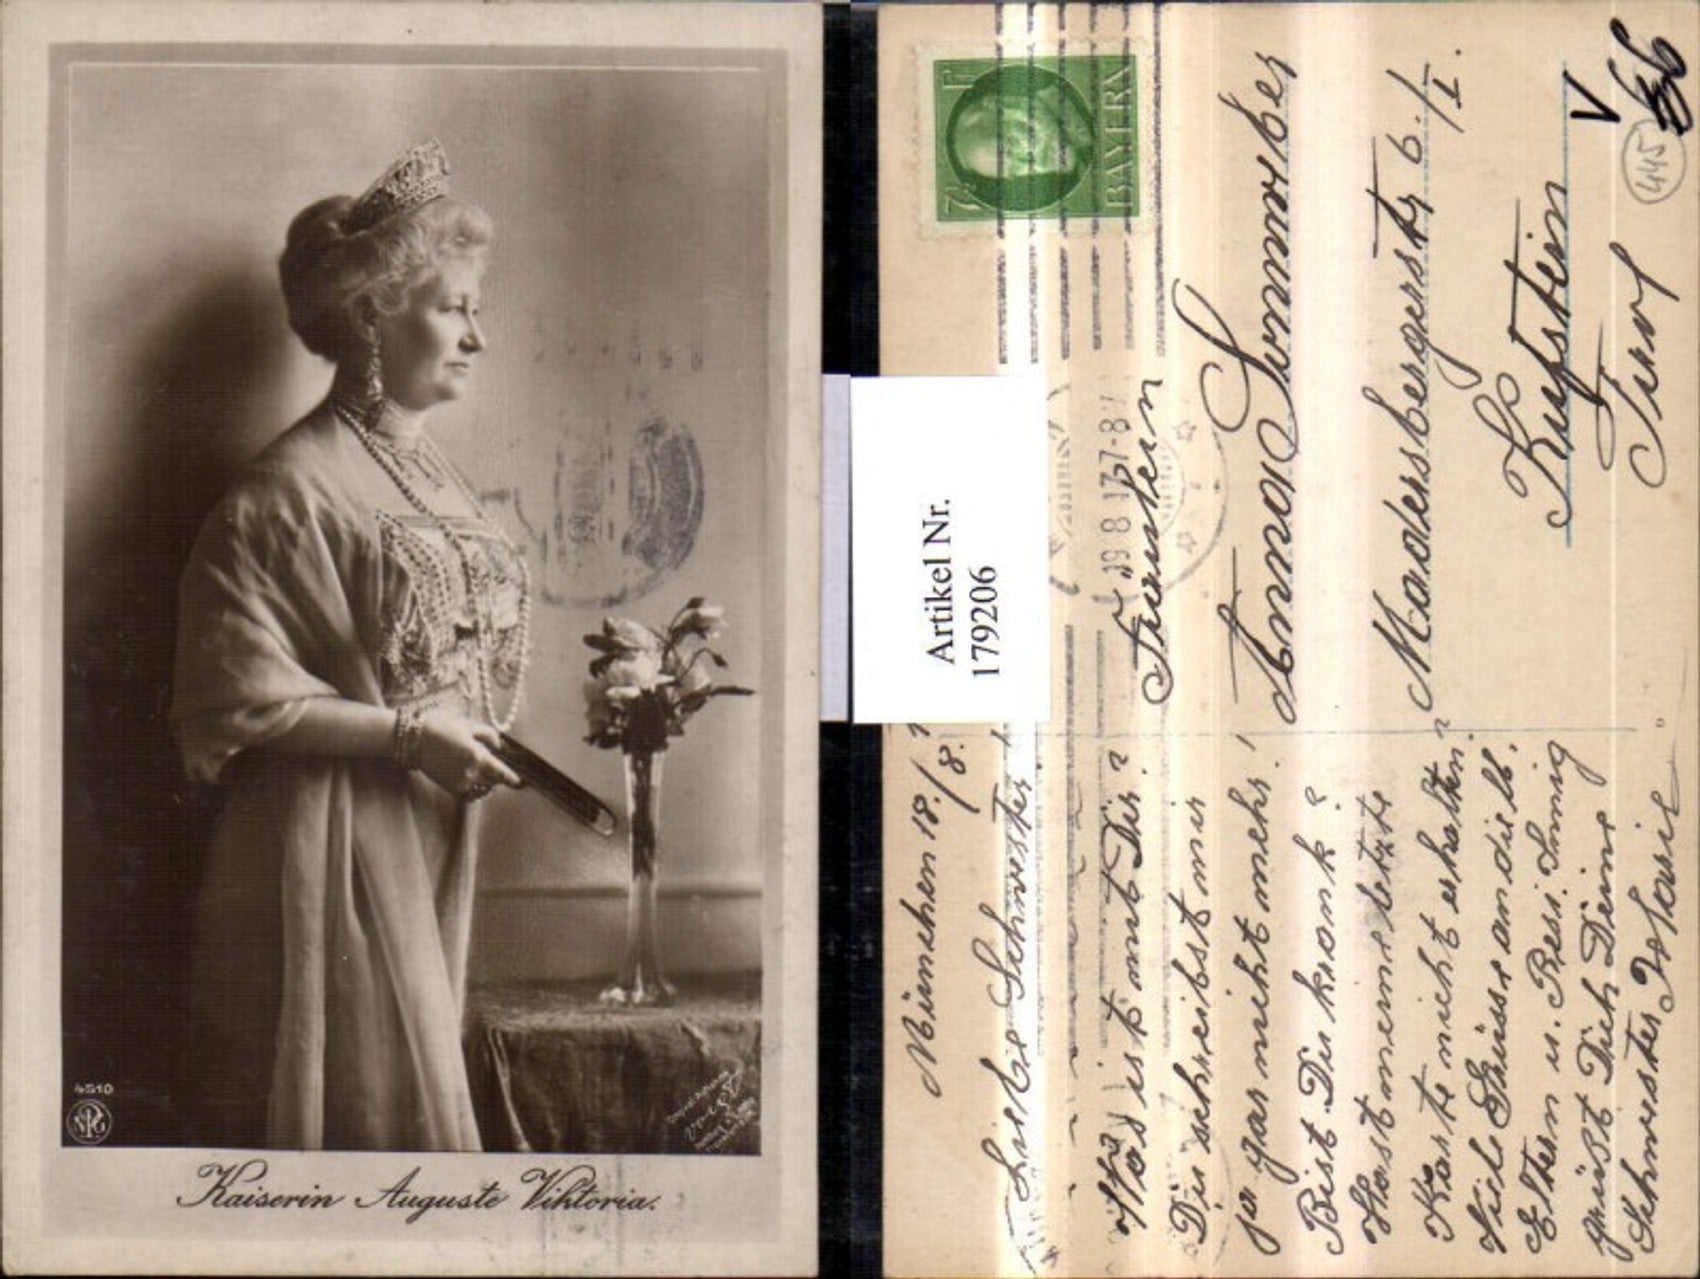 4510
NPG
Kaiserin Auguste Viktoria.
Artikel Nr.
1792206
BAYERN
München 18./8.
Liebe Schwester!
Was ist mit Dir?
Du schreibst mir
ja gar nicht mehr!
Bist Du krank?
Hast meine letzte
Karte nicht erhalten?
Viele Grüsse an die lb.
Eltern u. Resi. Innig
grüsst Dich Deine
Schwester
Fräulein
Anna
Maderspergerstr 6./I.
Kufstein
Tirol
V
445